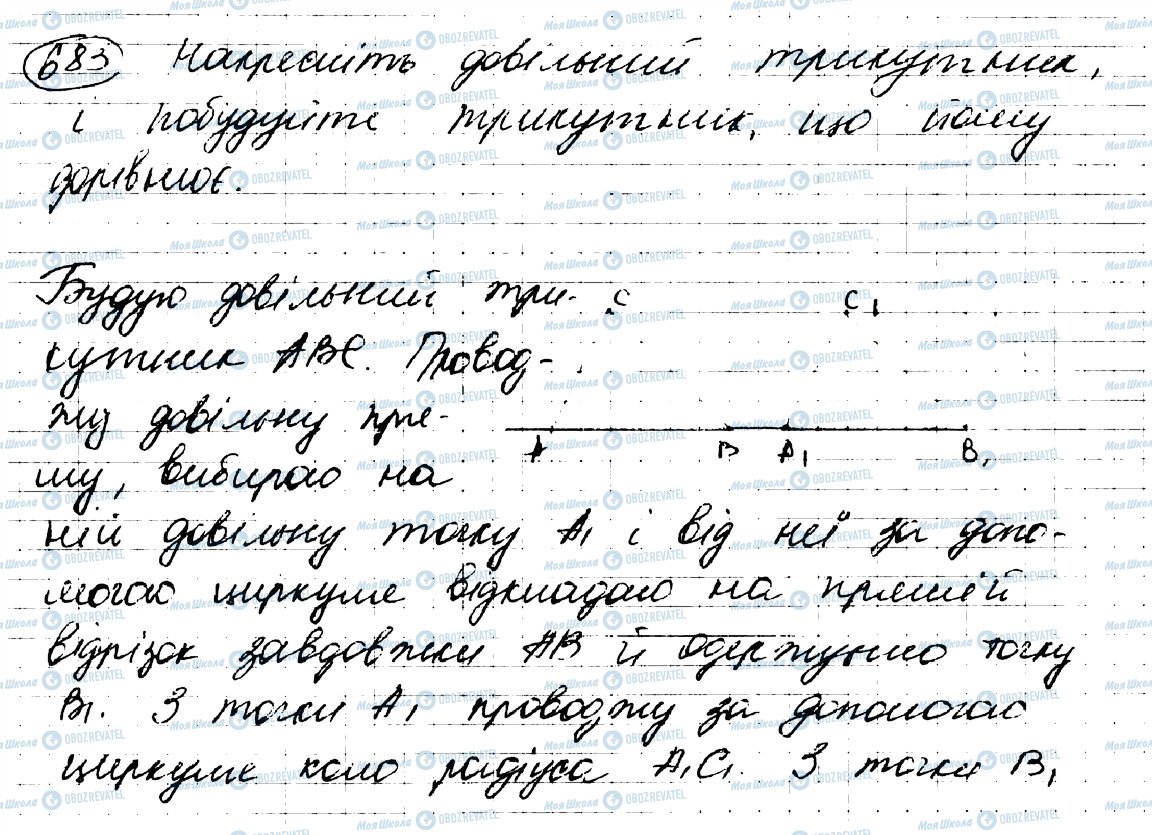 683 Накресліть довільний трикутник,
і побудуйте трикутник, що йому
дорівнює.
Будую довільний три-
кутник АВС. Провод-
жу довільну пря-
му, вибираю на
ній довільну точку А₁ і від неї за допо-
могою циркуля відкладаю на прямій
відрізок завдовжки АВ й одержуємо точку
В₁. З точки А₁ проводжу за допомогою
циркуля коло радіуса А₁С₁. З точки В₁
С С₁
А В А₁ В₁
МояШкола OBOZREVATEL